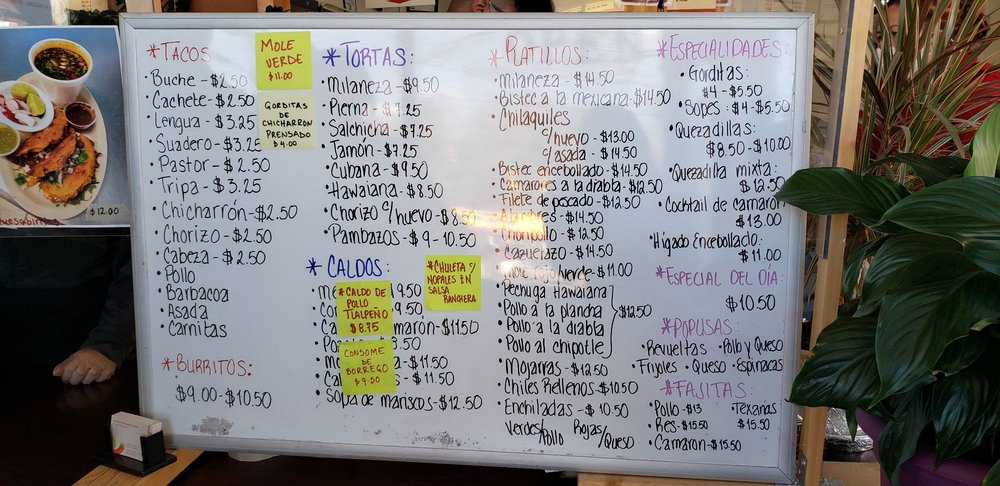 *TACOS
Buche - $2.50
Cachete - $2.50
Lengua - $3.25
Suadero - $3.25
Pastor - $2.50
Tripa - $3.25
Chicharrón - $2.50
Chorizo - $2.50
Cabeza - $2.50
Pollo
Barbacoa
Asada
Carnitas
*BURRITOS:
$9.00 - $10.50
MOLE
VERDE
$11.00
GORDITAS
DE
CHICHARRON
PRENSADO
$4.00
$12.00
*TORTAS:
Milaneza - $9.50
Pierna - $7.25
Salchicha - $7.25
Jamón - $7.25
Cubana - $9.50
Hawaiana - $8.50
Chorizo c/huevo - $8.50
Pambazos - $9 - 10.50
*CALDOS:
9.50
9.50
maron - $11.50
8.50
a - $11.50
- $11.50
Sopa de mariscos - $12.50
*CALDO DE
POLLO
TLALPEÑO
$8.75
CONSOME
DE
BORREGO
$9.50
*CHULETA c/
NOPALES EN
SALSA
RANCHERA
*PLATILLOS:
Milaneza - $14.50
Bistec a la mexicana - $14.50
Chilaquiles
c/huevo - $13.00
c/asada - $14.50
Bistec encebollado - $14.50
Camarones a la diabla - $12.50
Filete de pescado - $12.50
Alambres - $14.50
Choripollo - $12.50
Cazuelazo - $14.50
Mole rojo/verde - $11.00
Pechuga Hawaiana
Pollo a la plancha
$12.50
Pollo a la diabla
Pollo al chipotle
Mojarras - $12.50
Chiles Rellenos - $10.50
Enchiladas - $10.50
Verdes/Pollo Rojas/Queso
*ESPECIALIDADES:
Gorditas:
$4 - $5.50
Sopes: $4 - $5.50
Quezadillas:
$8.50 - $10.00
Quezadilla mixta:
$12.50
Cocktail de camaron
$13.00
Hígado Encebollado:
$11.00
*ESPECIAL DEL DÍA:
$10.50
*POPUSAS:
Revueltas · Pollo y Queso
Frijoles · Queso · Espinacas
*FAJITAS:
Pollo - $13 · Texanas
Res - $15.50 $15.50
Camaron - $15.50